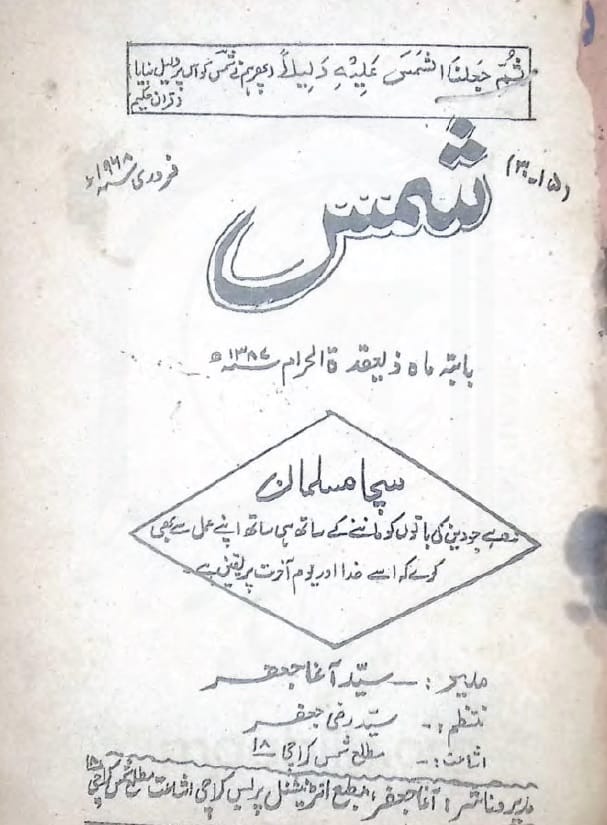 ثُمَّ جَعَلْنَا الشَّمْسَ عَلَيْهِ دَلِيلًا (پھر ہم نے شمس کو اس پر دلیل بنایا
قرآن حکیم)
(۱۵-۳)
فروری سنہ ۱۹۶۸ء
شمس
بابتہ ماہ ذیقعدۃ الحرام سنہ ۱۳۸۷ھ
سچا مسلمان
وہ ہے جو دین کی باتوں کو ماننے کے ساتھ ہی ساتھ اپنے عمل سے بھی
کرے کہ اسے خدا اور یوم آخرت پر یقین ہے۔
مدیر :۔ سیّد آغا جعفر
منتظم :۔ سیّد رضی جعفر
اشاعت :۔ مطلع شمس کراچی ۱۸
مدیر و ناشر : آغا جعفر، مطبع انٹرنیشنل پریس کراچی اشاعت مطلع شمس کراچی ۱۸